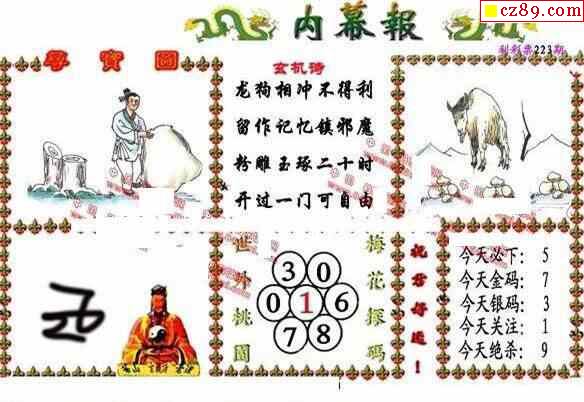 cz89.com
内幕報
彩票223期
寻寶圖
玄机诗
龙狗相冲不得利
留作记忆镇邪魔
粉雕玉琢二十时
开过一门可自由
世外桃園
3 0
0 1 6
7 8
梅花探码
祝君好运!
今天必下: 5
今天金码: 7
今天银码: 3
今天关注: 1
今天绝杀: 9